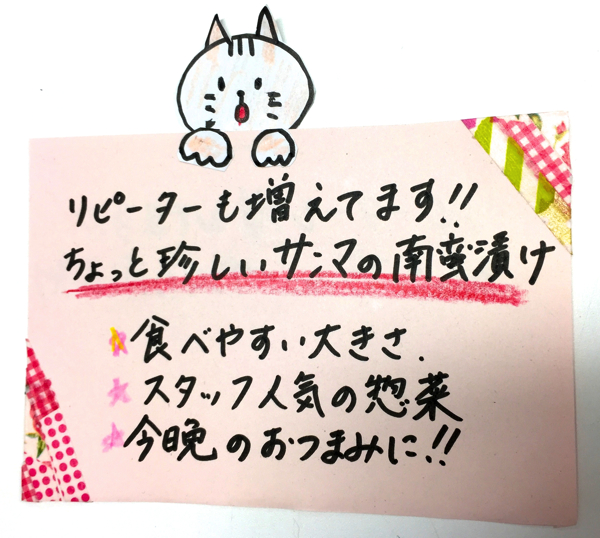 リピーターも増えてます!!
ちょっと珍しいサンマの南蛮漬け
食べやすい大きさ.
スタッフ人気の惣菜
今晩のおつまみに!!